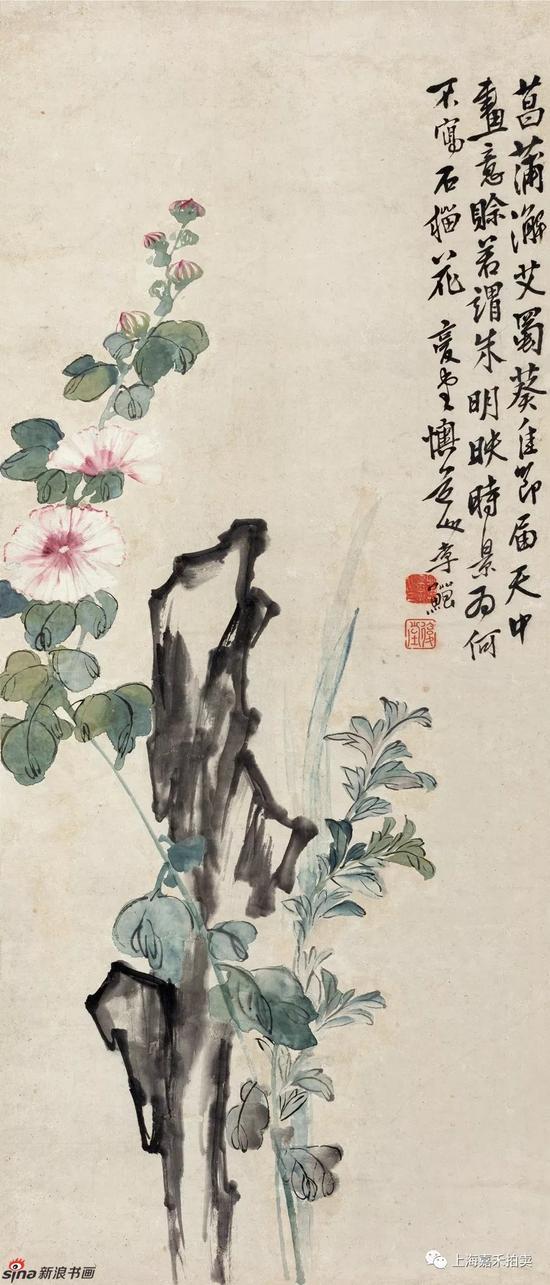 菖蒲澥艾蜀葵佳節届天中
畫意賒若謂朱明映時景為何
不寫石榴花 复堂懊道人李鱓
sina新浪书画
上海嘉禾拍卖